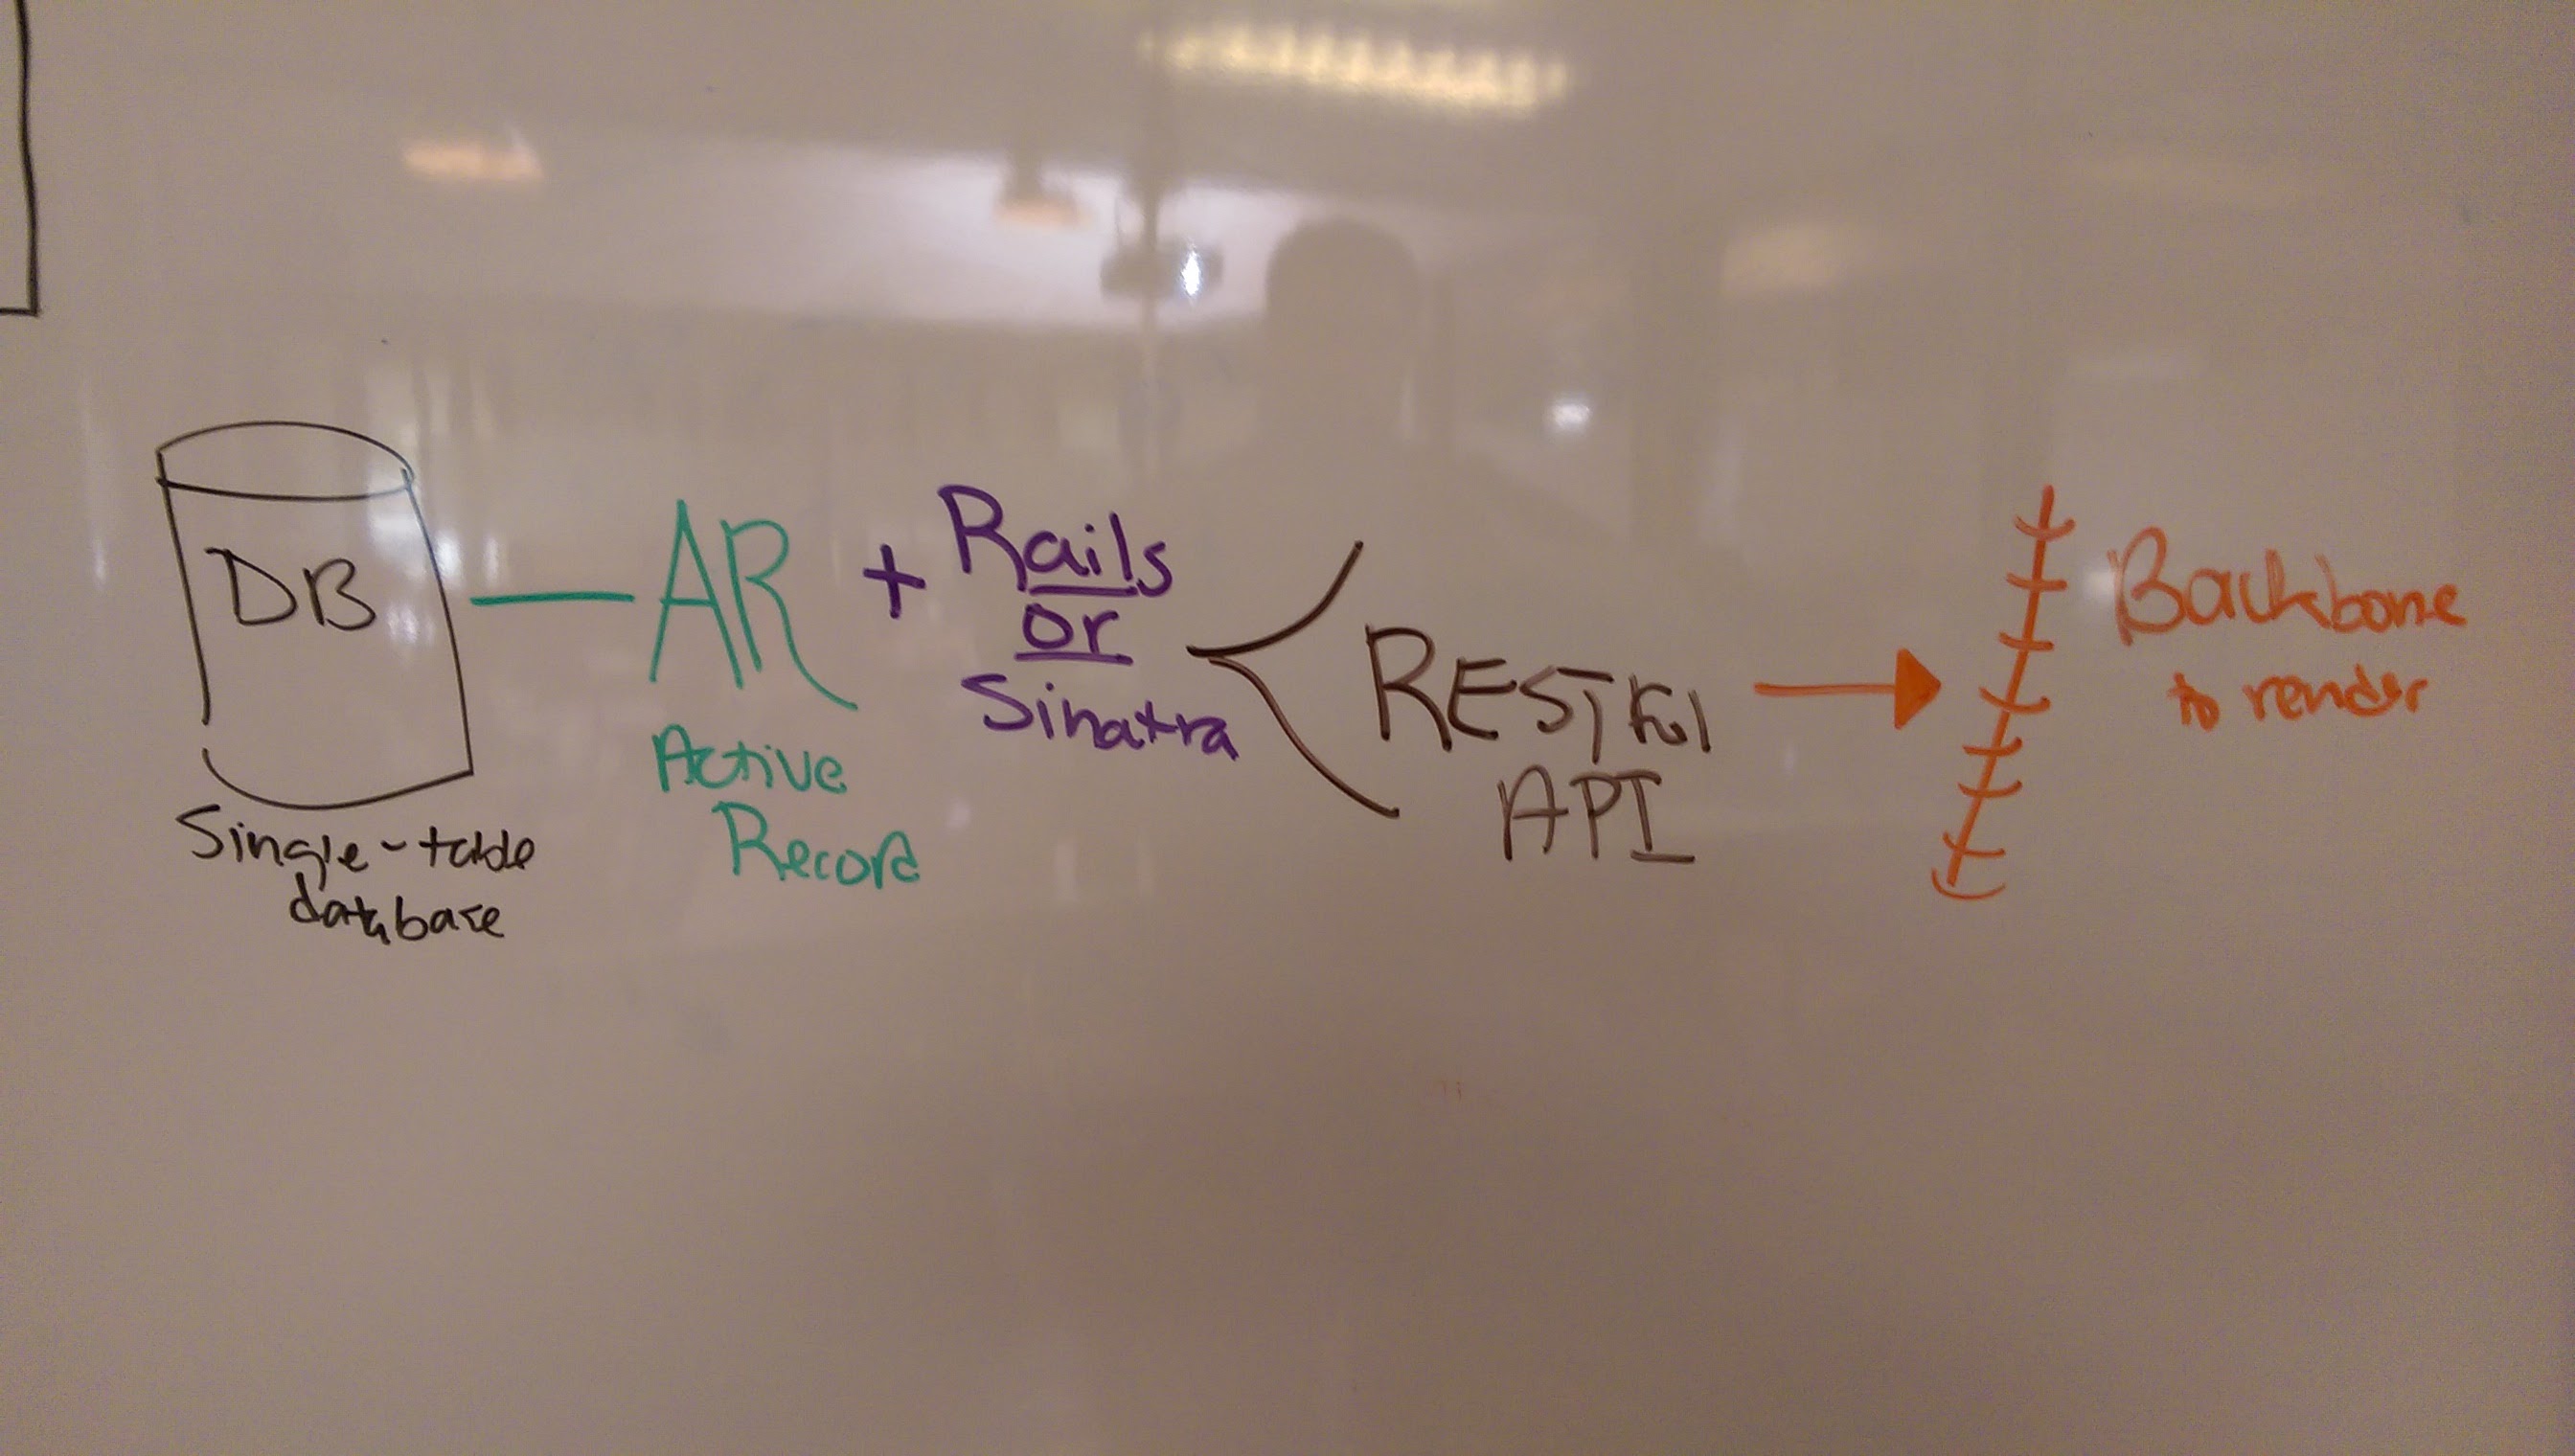 DB
Single-table
database
AR
Active
Record
+ Rails
or
Sinatra
RESTful
API
Backbone
to render